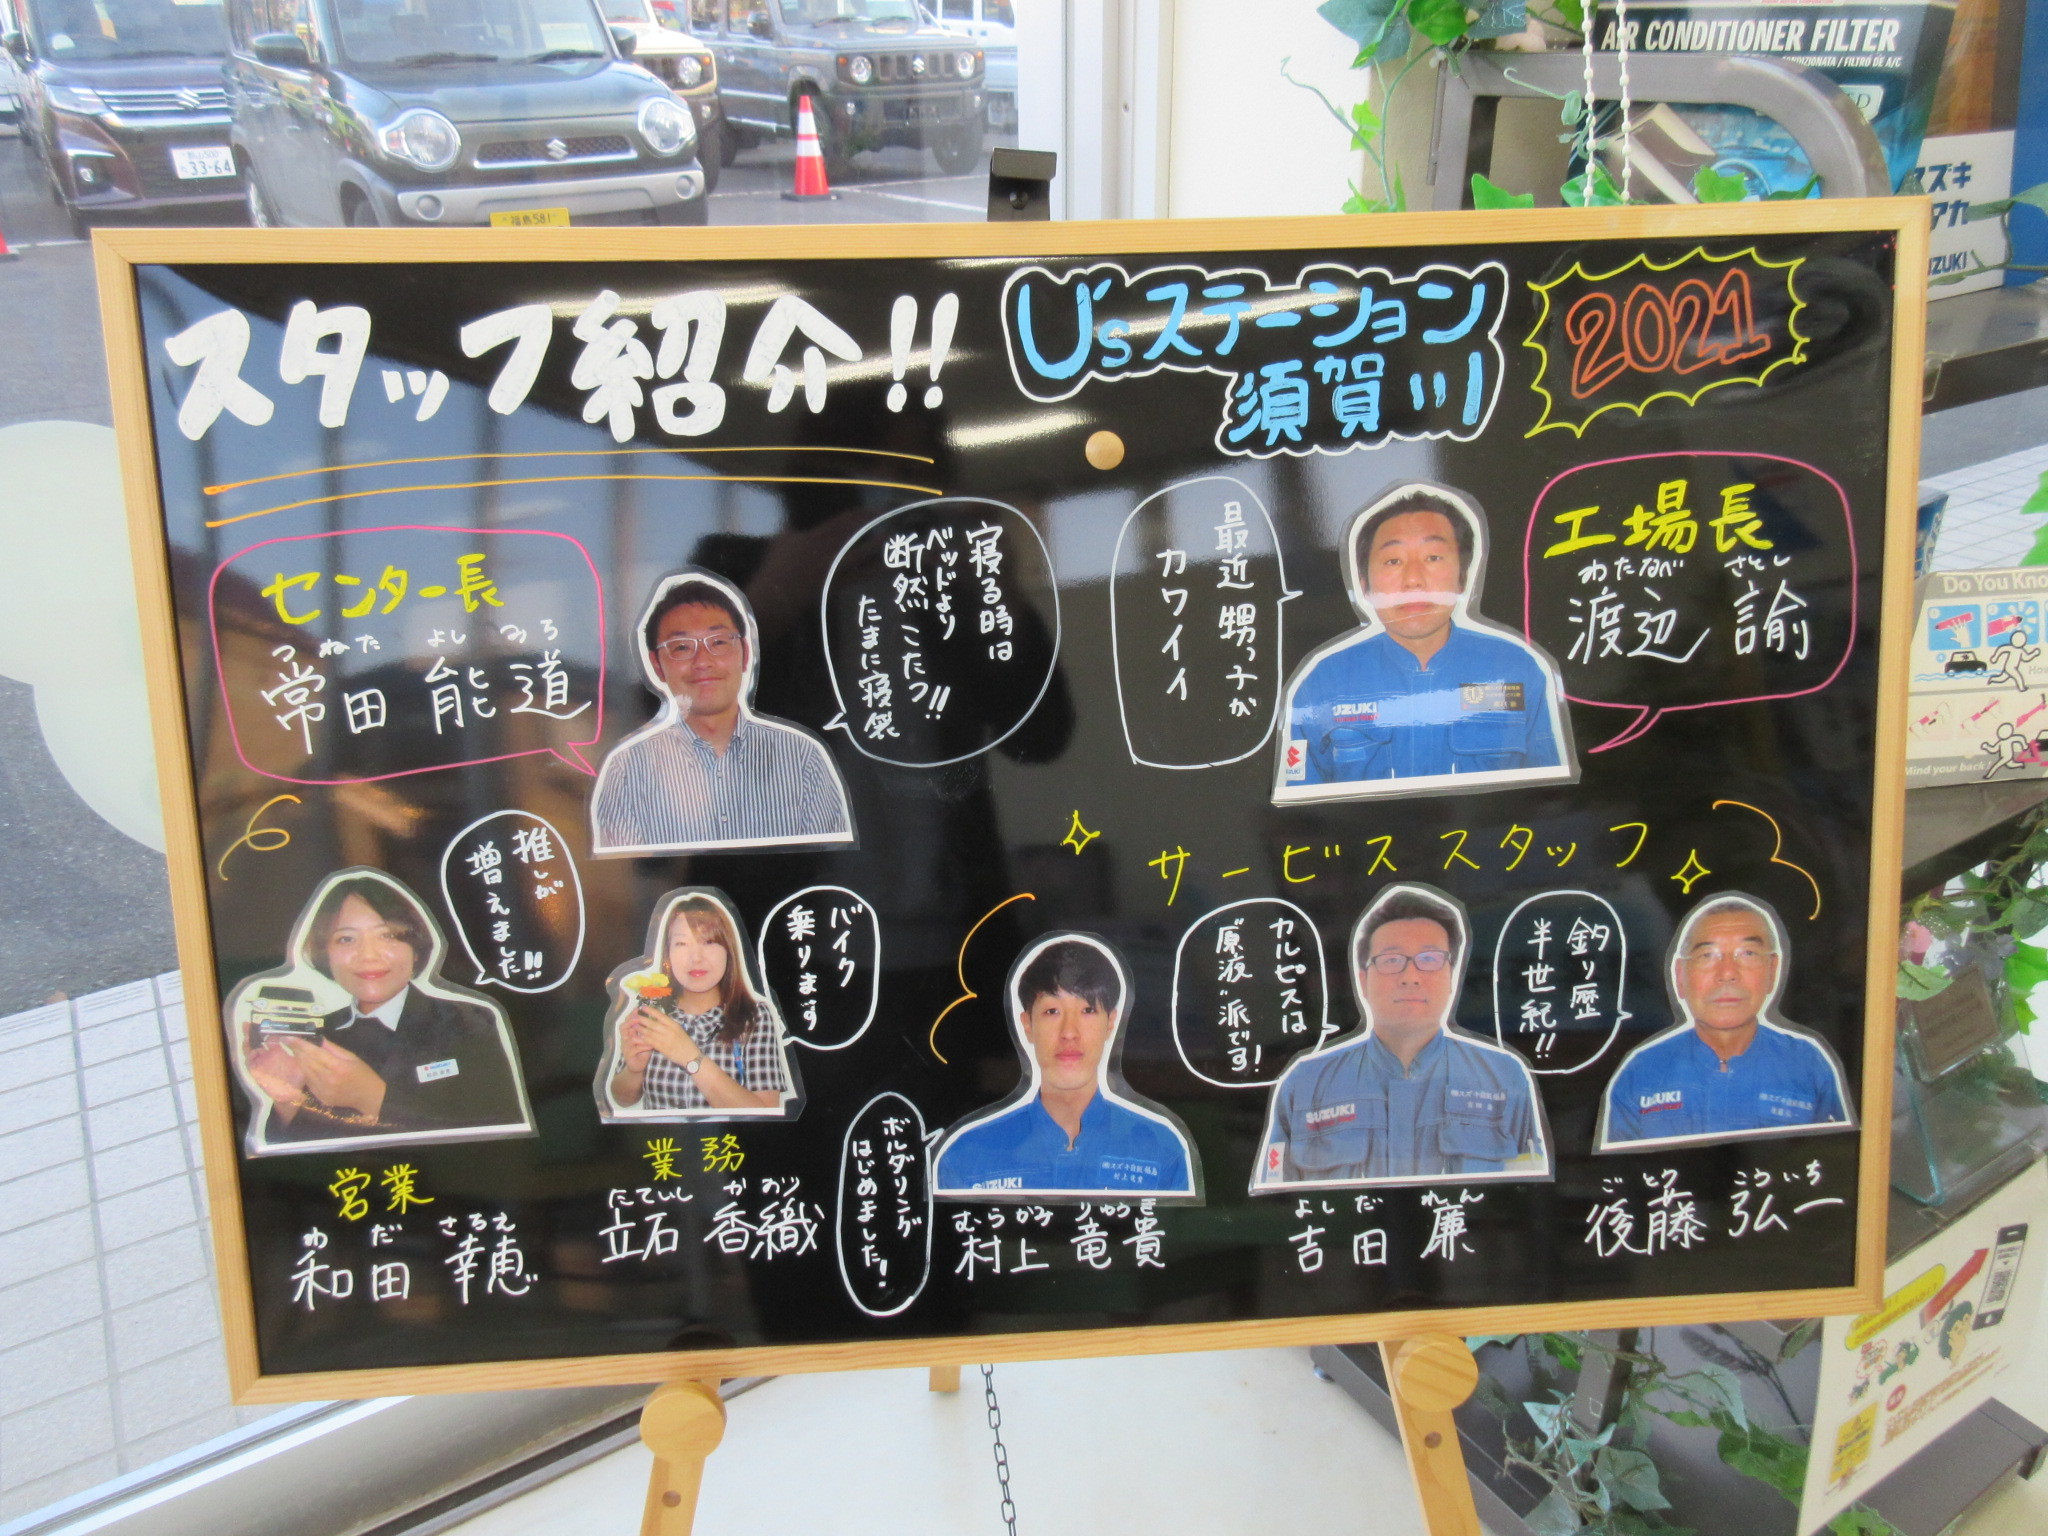 スタッフ紹介!!
U'sステーション
須賀川
2021
センター長
つねた よしみろ
常田 能道
寝る時は
ベッドより
断然こたつ!!
たまに寝袋
最近 甥っ子が
カワイイ
工場長
わたなべ さとし
渡辺 諭
サービススタッフ
推しが
増えました!!
営業
わだ さちえ
和田 幸恵
バイク
乗ります
業務
たていし かおり
立石 香織
ボルダリング
はじめました!
むらかみ りゅうき
村上 竜貴
カルピスは
"原液"派です!
よしだ れん
吉田 廉
釣り歴
半世紀!!
ごとう こういち
後藤 弘一
SUZUKI
SUZUKI
AIR CONDITIONER FILTER
スズキ
SUZUKI
33-64
福島581
Do You Know
Mind your back!